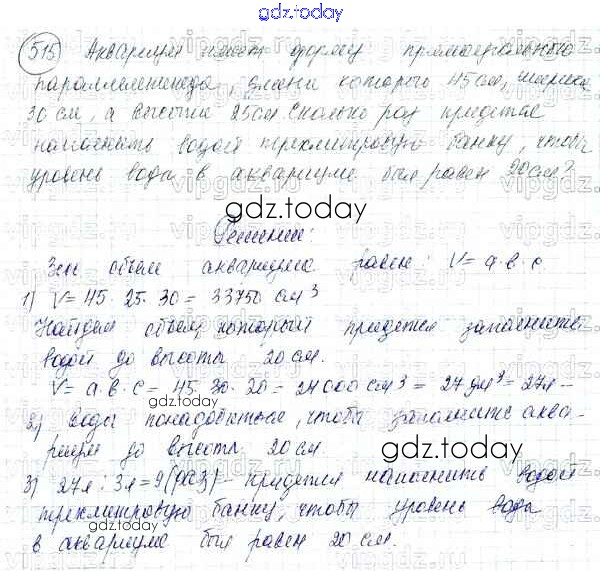 gdz.today
515 Аквариум имеет форму прямоугольного
параллелепипеда, длина которого 45 см, ширина
30 см, а высота 25 см. Сколько раз придётся
наполнить водой трехлитровую банку, чтобы
уровень воды в аквариуме был равен 20 см?
gdz.today
Решение:
объем аквариума равен: V = a·b·c.
1) V = 45·25·30 = 33750 см³
Найдем объем, который придется заполнить
водой до высоты 20 см.
V = a·b·c = 45·30·20 = 27000 см³ = 27 дм³ = 27л –
gdz.today
2) воды понадобиться, чтобы заполнить аква-
риум до высоты 20 см.
gdz.today
3) 27л : 3л = 9 (раз) – придется наполнить водой
трехлитровую банку, чтобы уровень воды
gdz.today
в аквариуме был равен 20 см.